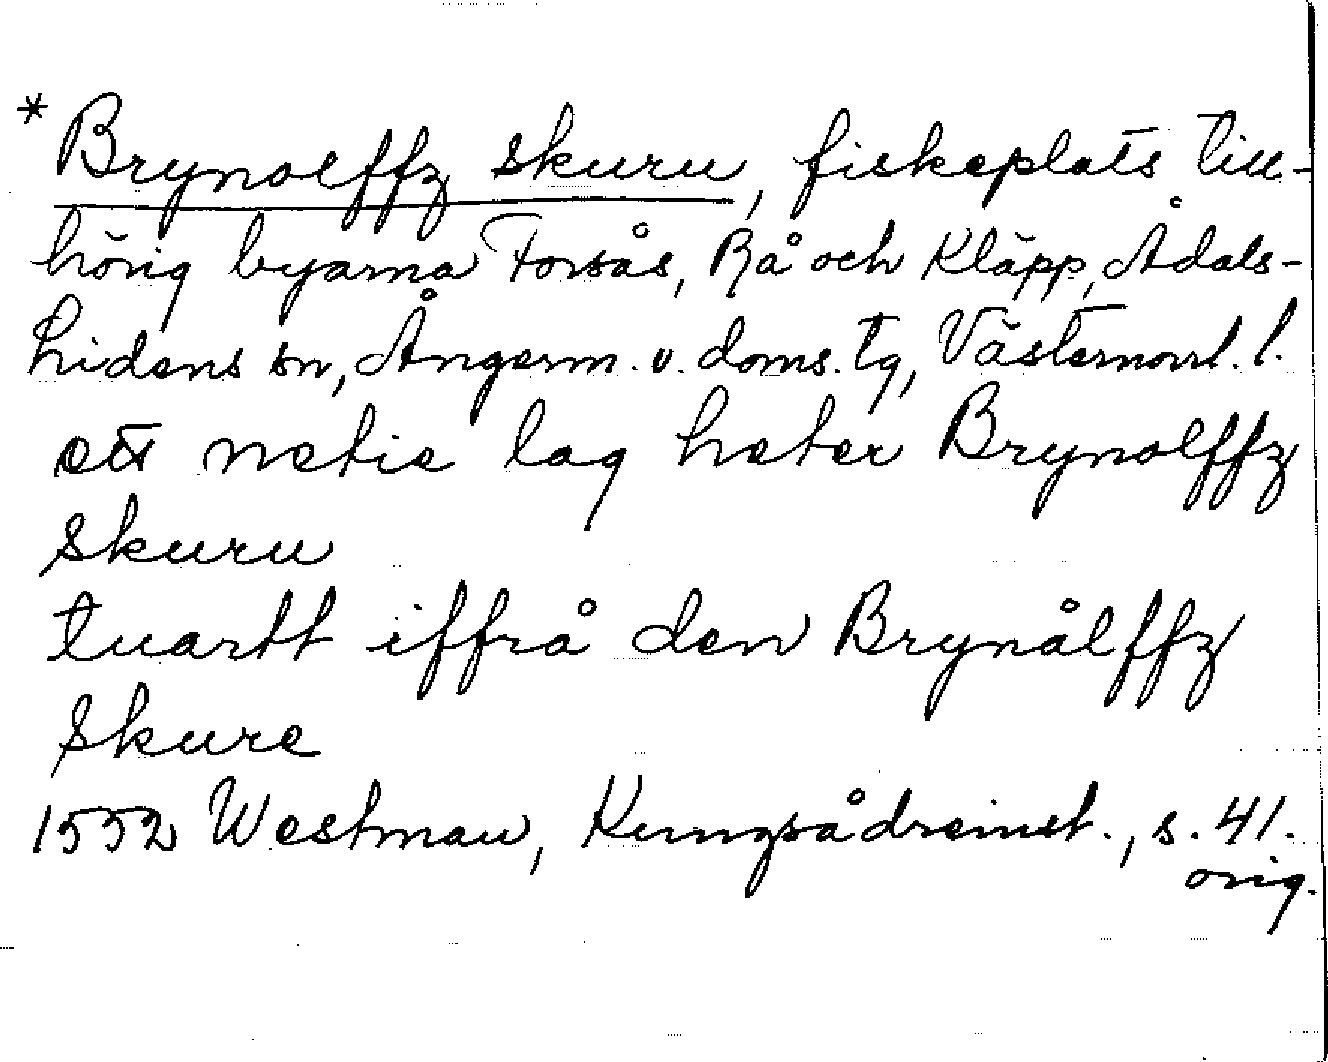 * Brynolffz skuru, fiskeplats till-
hörig byarna Forsås, Rå och Kläpp, Ådals-
lidens sn, Ångerm. v. doms. tg, Västernorrl. l.
ett netie lag heter Brynolffz
skuru
tuartt iffrå den Brynålffz
skure
1552 Westman, Kungsådreinst., s. 41.
orig.